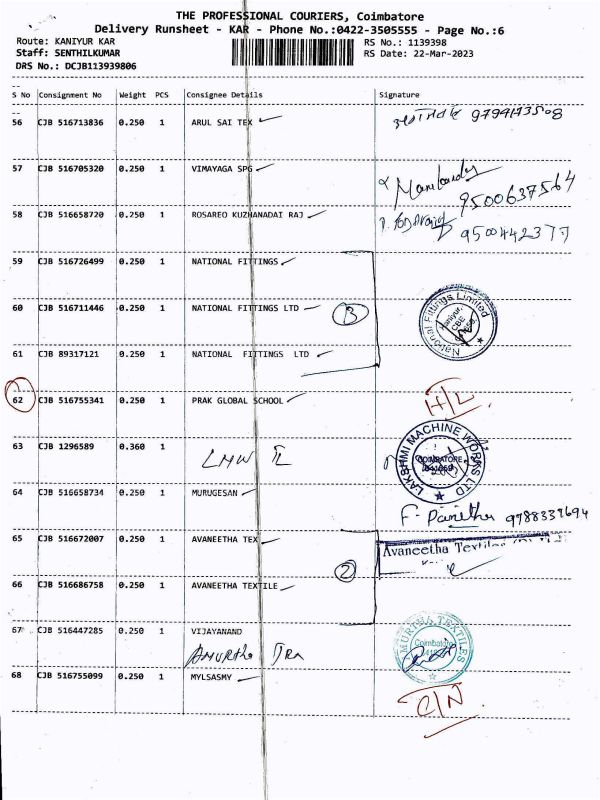 THE PROFESSIONAL COURIERS, Coimbatore
Delivery Runsheet - KAR - Phone No.:0422-3505555 - Page No.:6
Route: KANIYUR KAR RS No.: 1139398
Staff: SENTHILKUMAR RS Date: 22-Mar-2023
DRS No.: DCJB113939806
S No Consignment No Weight PCS Consignee Details Signature
56 CJB 516713836 0.250 1 ARUL SAI TEX
57 CJB 516705320 0.250 1 VIMAYAGA SPG 9500637564
58 CJB 516658720 0.250 1 ROSAREO KUZHANADAI RAJ
59 CJB 516726499 0.250 1 NATIONAL FITTINGS
60 CJB 516711446 0.250 1 NATIONAL FITTINGS LTD 3 National Fittings Limited Kaniyur, CBE
61 CJB 89317121 0.250 1 NATIONAL FITTINGS LTD
62 CJB 516755341 0.250 1 PRAK GLOBAL SCHOOL H/L
63 CJB 1296589 0.360 1 LMW LAKSHMI MACHINE WORKS LTD COIMBATORE
64 CJB 516658734 0.250 1 MURUGESAN 9788339694
65 CJB 516672007 0.250 1 AVANEETHA TEX Avaneetha Textiles
66 CJB 516686758 0.250 1 AVANEETHA TEXTILE 2
67 CJB 516447285 0.250 1 VIJAYANAND AMURTHA TEXTILES Coimbatore
68 CJB 516755099 0.250 1 MYLSASMY C/N